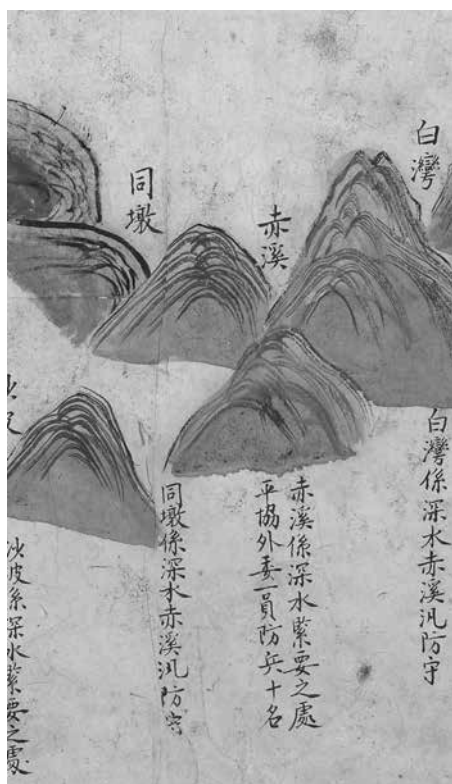 白灣
白灣係深水赤溪汛防守
赤溪
赤溪係深水緊要之處
平協外委一員防兵十名
同墩
同墩係深水赤溪汛防守
沙皮
沙皮係深水緊要之處